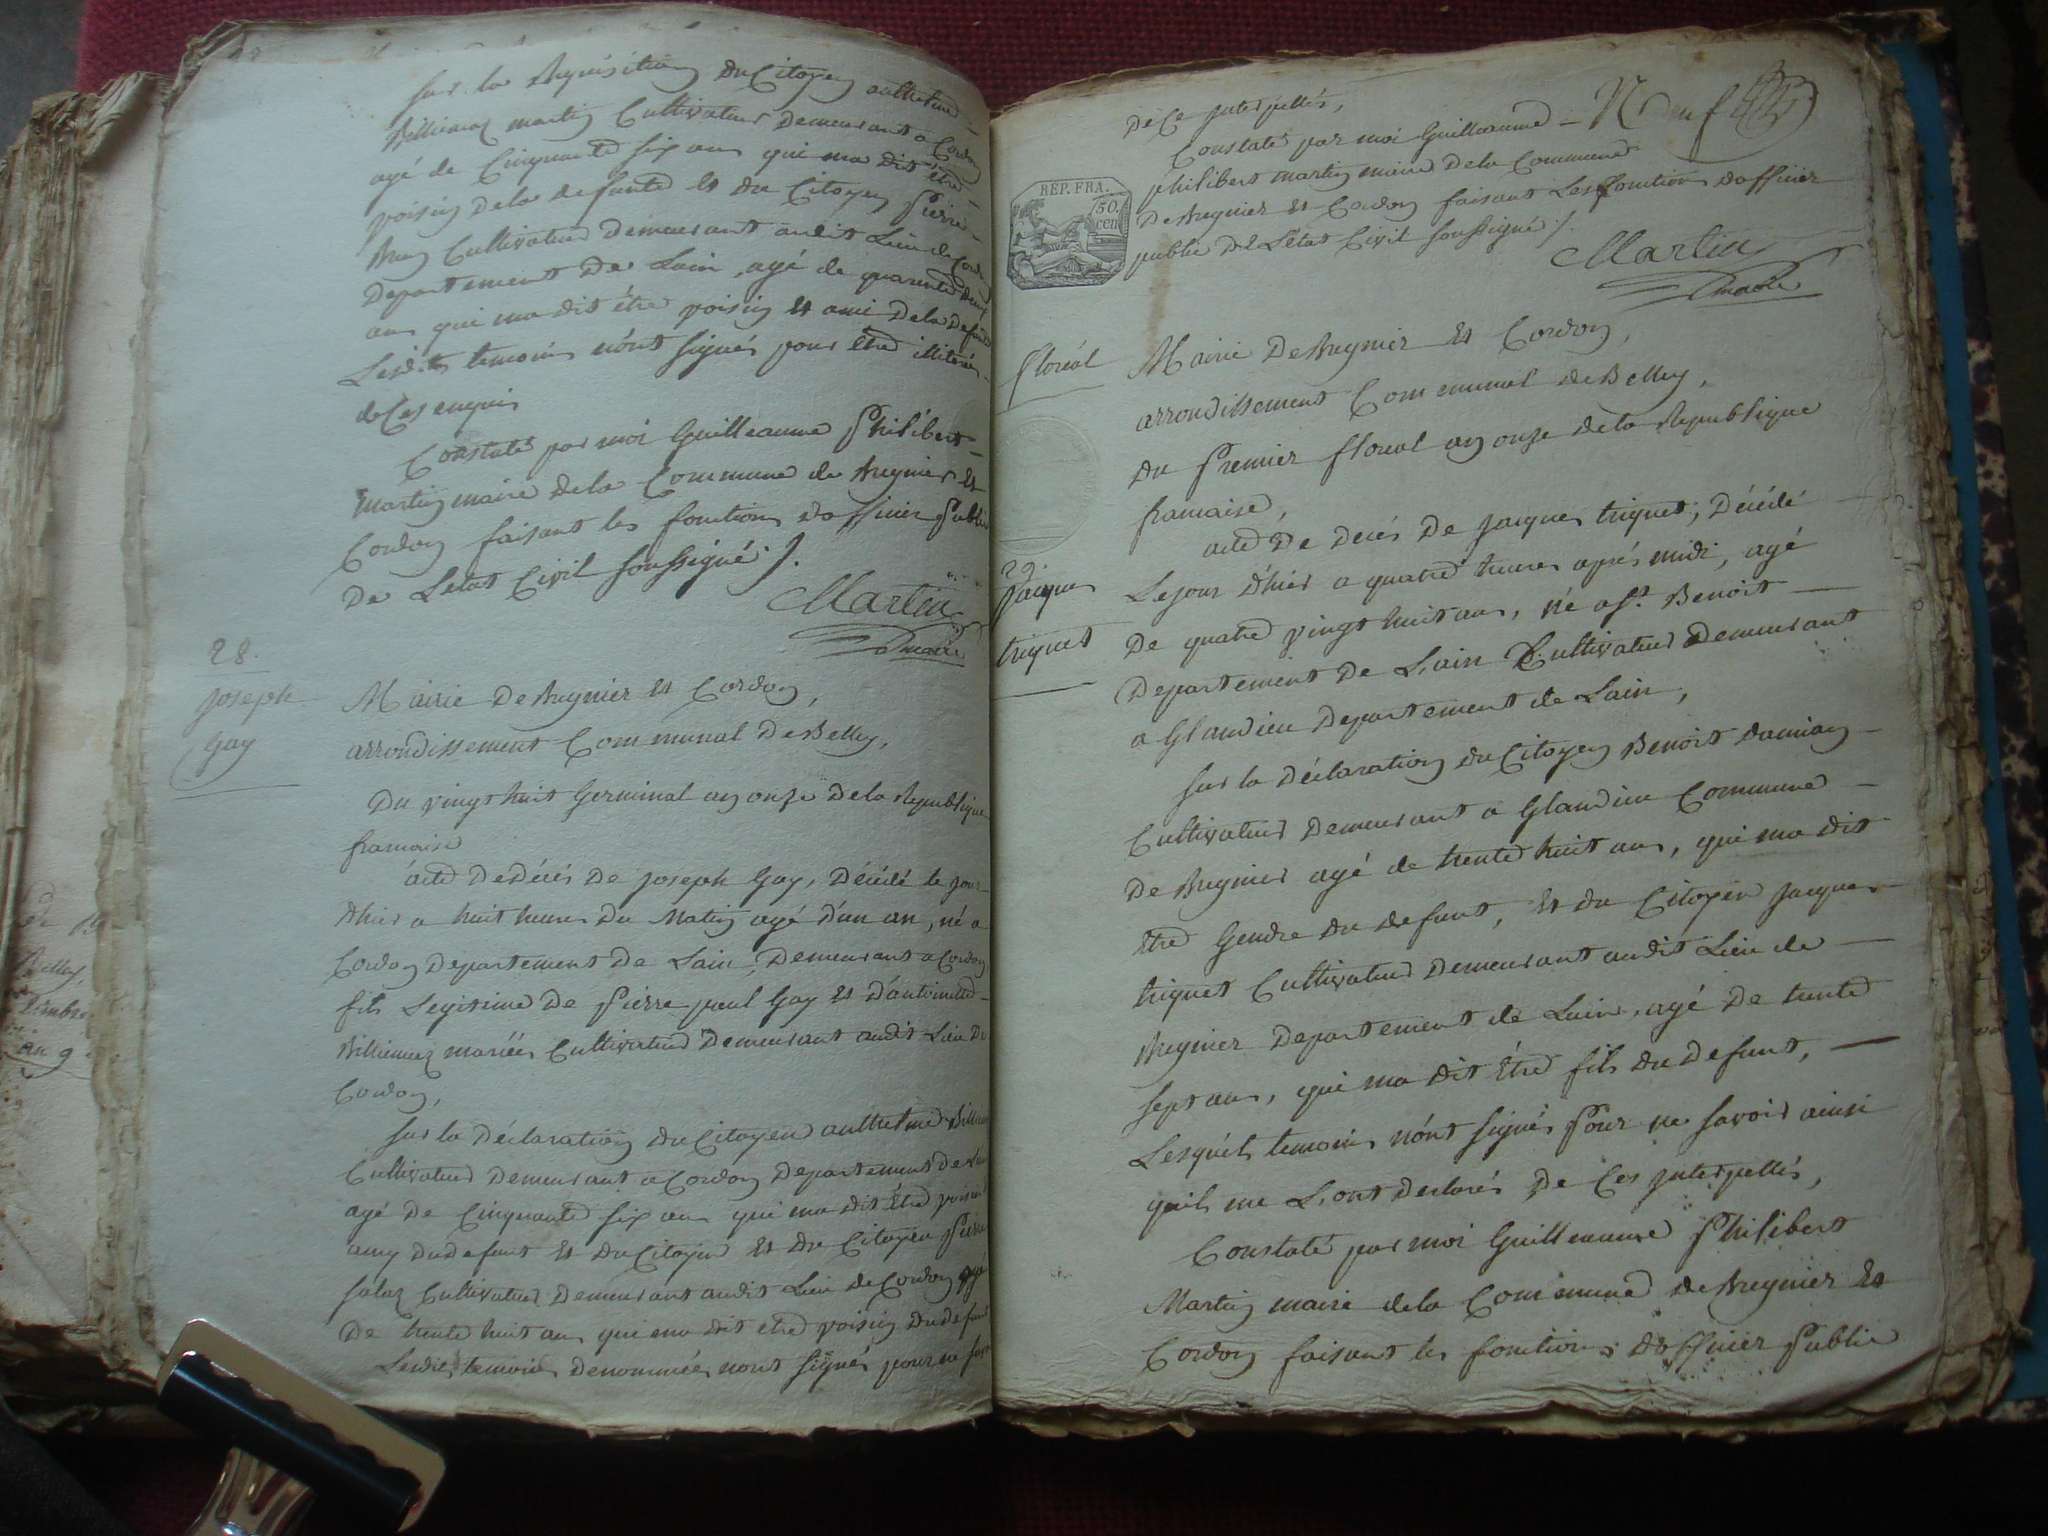 sur la Requisition du Citoyen anthelme
Billiemaz martin Cultivateur demeurant a Cordon
agé de Cinquante six ans qui ma dit être
voisin de la defunte et du Citoyen Pierre
Cultivateur demeurant audit Lieu de Cordon
Departement De Lain, agé de quarente deux
ans qui ma dit être voisin et ami de la defunte
Lesdits temoins n'ont signés pour être illiterés
de Ces enquis
Constaté par moi Guilleaume Philibert
Martin maire de la Commune de Bregnier et
Cordon faisant les fonctions d'officier Public
De Letat Civil soussigné ./.
Martin
maire
28.
joseph
Gay
Mairie De Bregnier et Cordon,
arrondissement Communal De Belley,
Du vingt huit Germinal an onze de la Republique
francaise
acte De Décès De joseph Gay, Décédé le jour
d'hier a huit heures Du Matin agé d'un an, né a
Cordon Departement De Lain, Demeurant a Cordon
fils Legitime De Pierre paul Gay et d'antoinette
Billiemaz mariés Cultivateurs Demeurant audit Lieu De
Cordon,
sur la Déclaration du Citoyen anthelme
Cultivateur Demeurant a Cordon Departement de Lain
agé De Cinquante six ans qui ma dit être voisin
amy du defunt et du Citoyen et du Citoyen Pierre
Cultivateur Demeurant audit Lieu de Cordon agé
De trente huit ans qui ma dit être voisin du defunt
Lesdits temoins denommés n'ont signés pour ne
de Ce interpellés,
Constaté par moi Guilleaume
philibert martin maire de la Commune
de Bregnier et Cordon faisant Les fonctions d'officier
public de L'état Civil soussigné ./.
Martin
maire
REP. FRA.
50.
cen.
floréal
Mairie De Bregnier et Cordon,
arrondissement Communal de Belley,
du Premier floréal an onze de la Republique
francaise,
29.
Jacques
triquet
acte De Décès De jacques triquet, Décédé
Le jour d'hier a quatre heures après midi, agé
De quatre vingt huit ans, né a St. Benoit
Departement De L'ain Cultivateur Demeurant
a Glandieu Departement de Lain,
sur la Déclaration du Citoyen Benoit damian
Cultivateur Demeurant a Glandieu Commune
De Bregnier agé de trente huit ans, qui ma dit
être Gendre du defunt, et du Citoyen jacques
triquet Cultivateur Demeurant audit Lieu de
Bregnier Departement de Lain, agé De trente
sept ans, qui ma dit être fils du defunt,
Lesquels temoins n'ont signés Pour ne savoir ainsi
quils me L'ont declarés De Ces interpellés,
Constaté par moi Guilleaume Philibert
Martin maire de la Commune de Bregnier et
Cordon faisant les fonctions d'officier Public